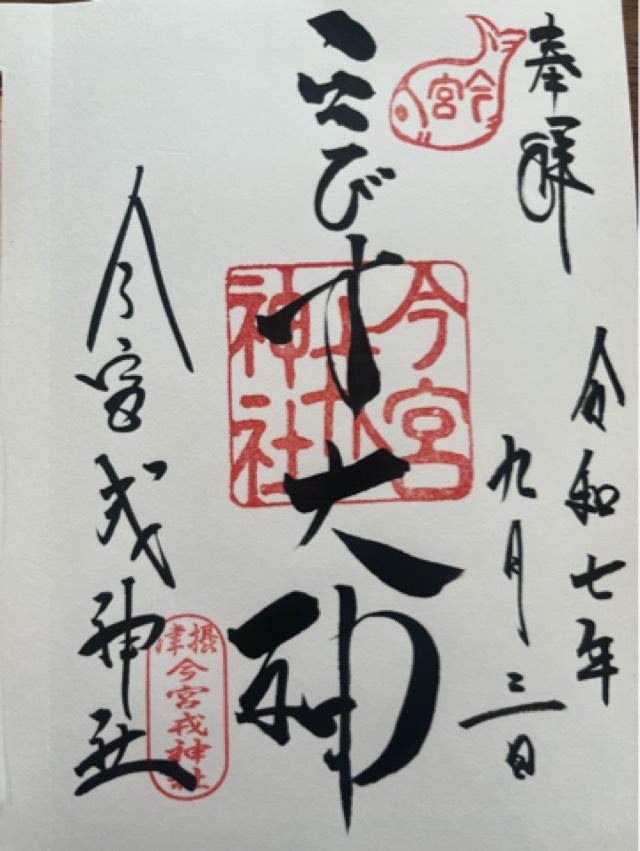 奉拝
令和七年
九月三日
今宮
ゑびす大神
今宮
戎
神社
今宮戎神社
攝津
今宮戎神社